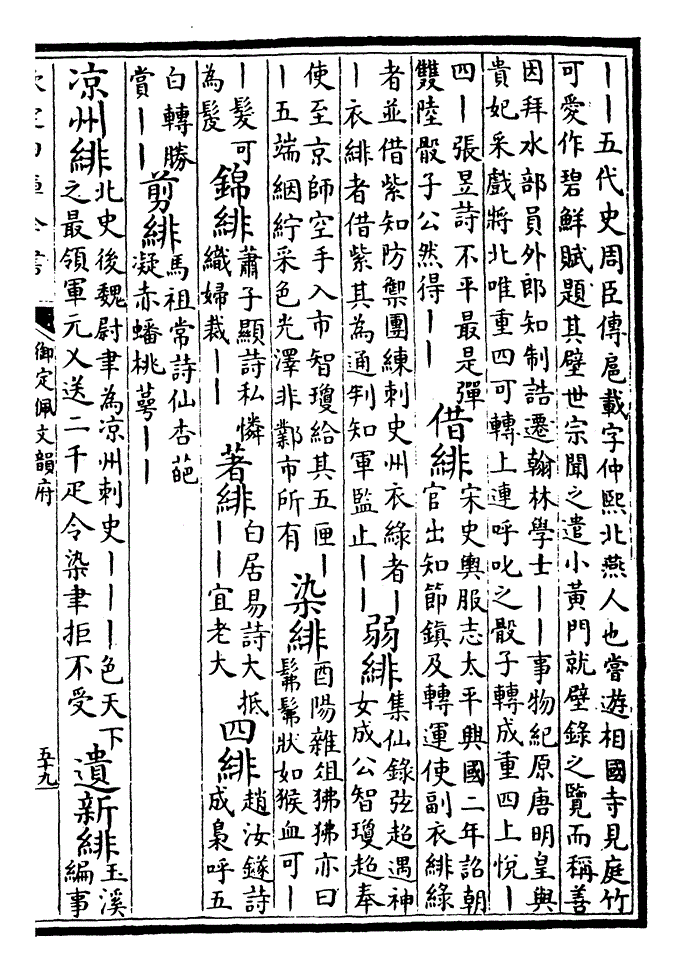 丨丨五代史周臣傳扈載字仲熙北燕人也嘗遊相國寺見庭竹
可愛作碧鮮賦題其壁世宗聞之遣小黃門就壁錄之覽而稱善
因拜水部員外郎知制誥遷翰林學士丨丨事物紀原唐明皇與
貴妃采戲將北唯重四可轉上連呼叱之骰子轉成重四上悅丨
四丨張昱詩不平最是彈
雙陸骰子公然得丨丨
借緋
宋史輿服志太平興國二年詔朝
官出知節鎮及轉運使副衣緋綠
者並借紫知防禦團練刺史州衣綠者丨
丨衣緋者借紫其為通判知軍監止丨丨
弱緋
集仙錄弦超遇神
女成公智瓊超奉
使至京師空手入市智瓊給其五匣丨
丨五端絪紵采色光澤非鄴市所有
染緋
酉陽雜俎狒狒亦曰
髴髴狀如猴血可丨
丨髮可
為髲
錦緋
蕭子顯詩私憐
織婦裁丨丨
著緋
白居易詩大抵
丨丨宜老大
四緋
趙汝鐩詩
成梟呼五
白轉勝
賞丨丨
剪緋
馬祖常詩仙杏葩
凝赤蟠桃萼丨丨
涼州緋
北史後魏尉聿為涼州刺史丨丨丨色天下
之最領軍元乂送二千疋令染聿拒不受
遺新緋
玉溪
編事
御定佩文韻府
五十九